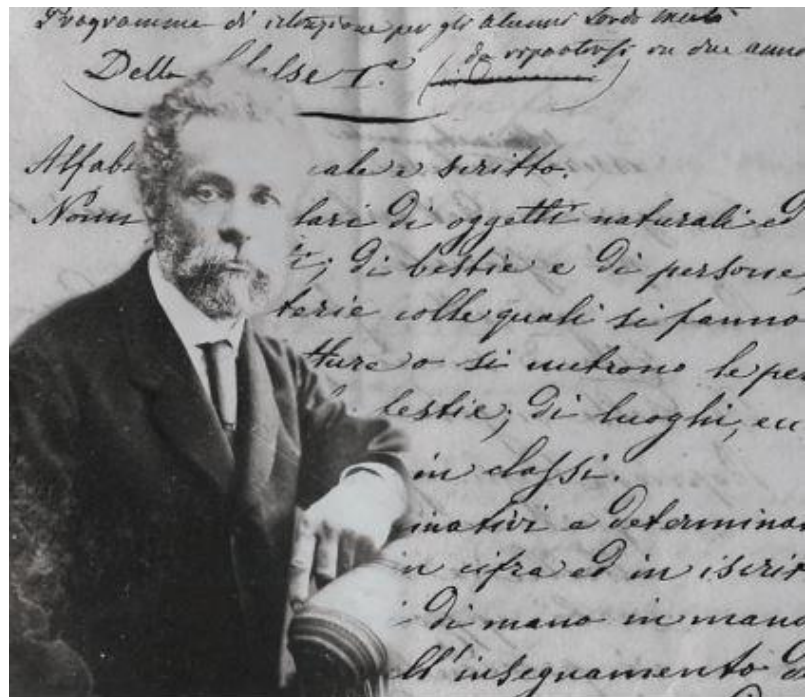 Programma di istruzione per gli alunni sordo muti
da ripartirsi in due anni
Della Classe I.a
Alfab cale e scritto.
Nomi lari di oggetti naturali ed
di bestie e di persone,
terie colle quali si fanno
tture o si nutrono le per
bestie; di luoghi, ecc
in classi.
inativi e determina
in cifra ed in iscrit
di mano in mano
ll'insegnamento d